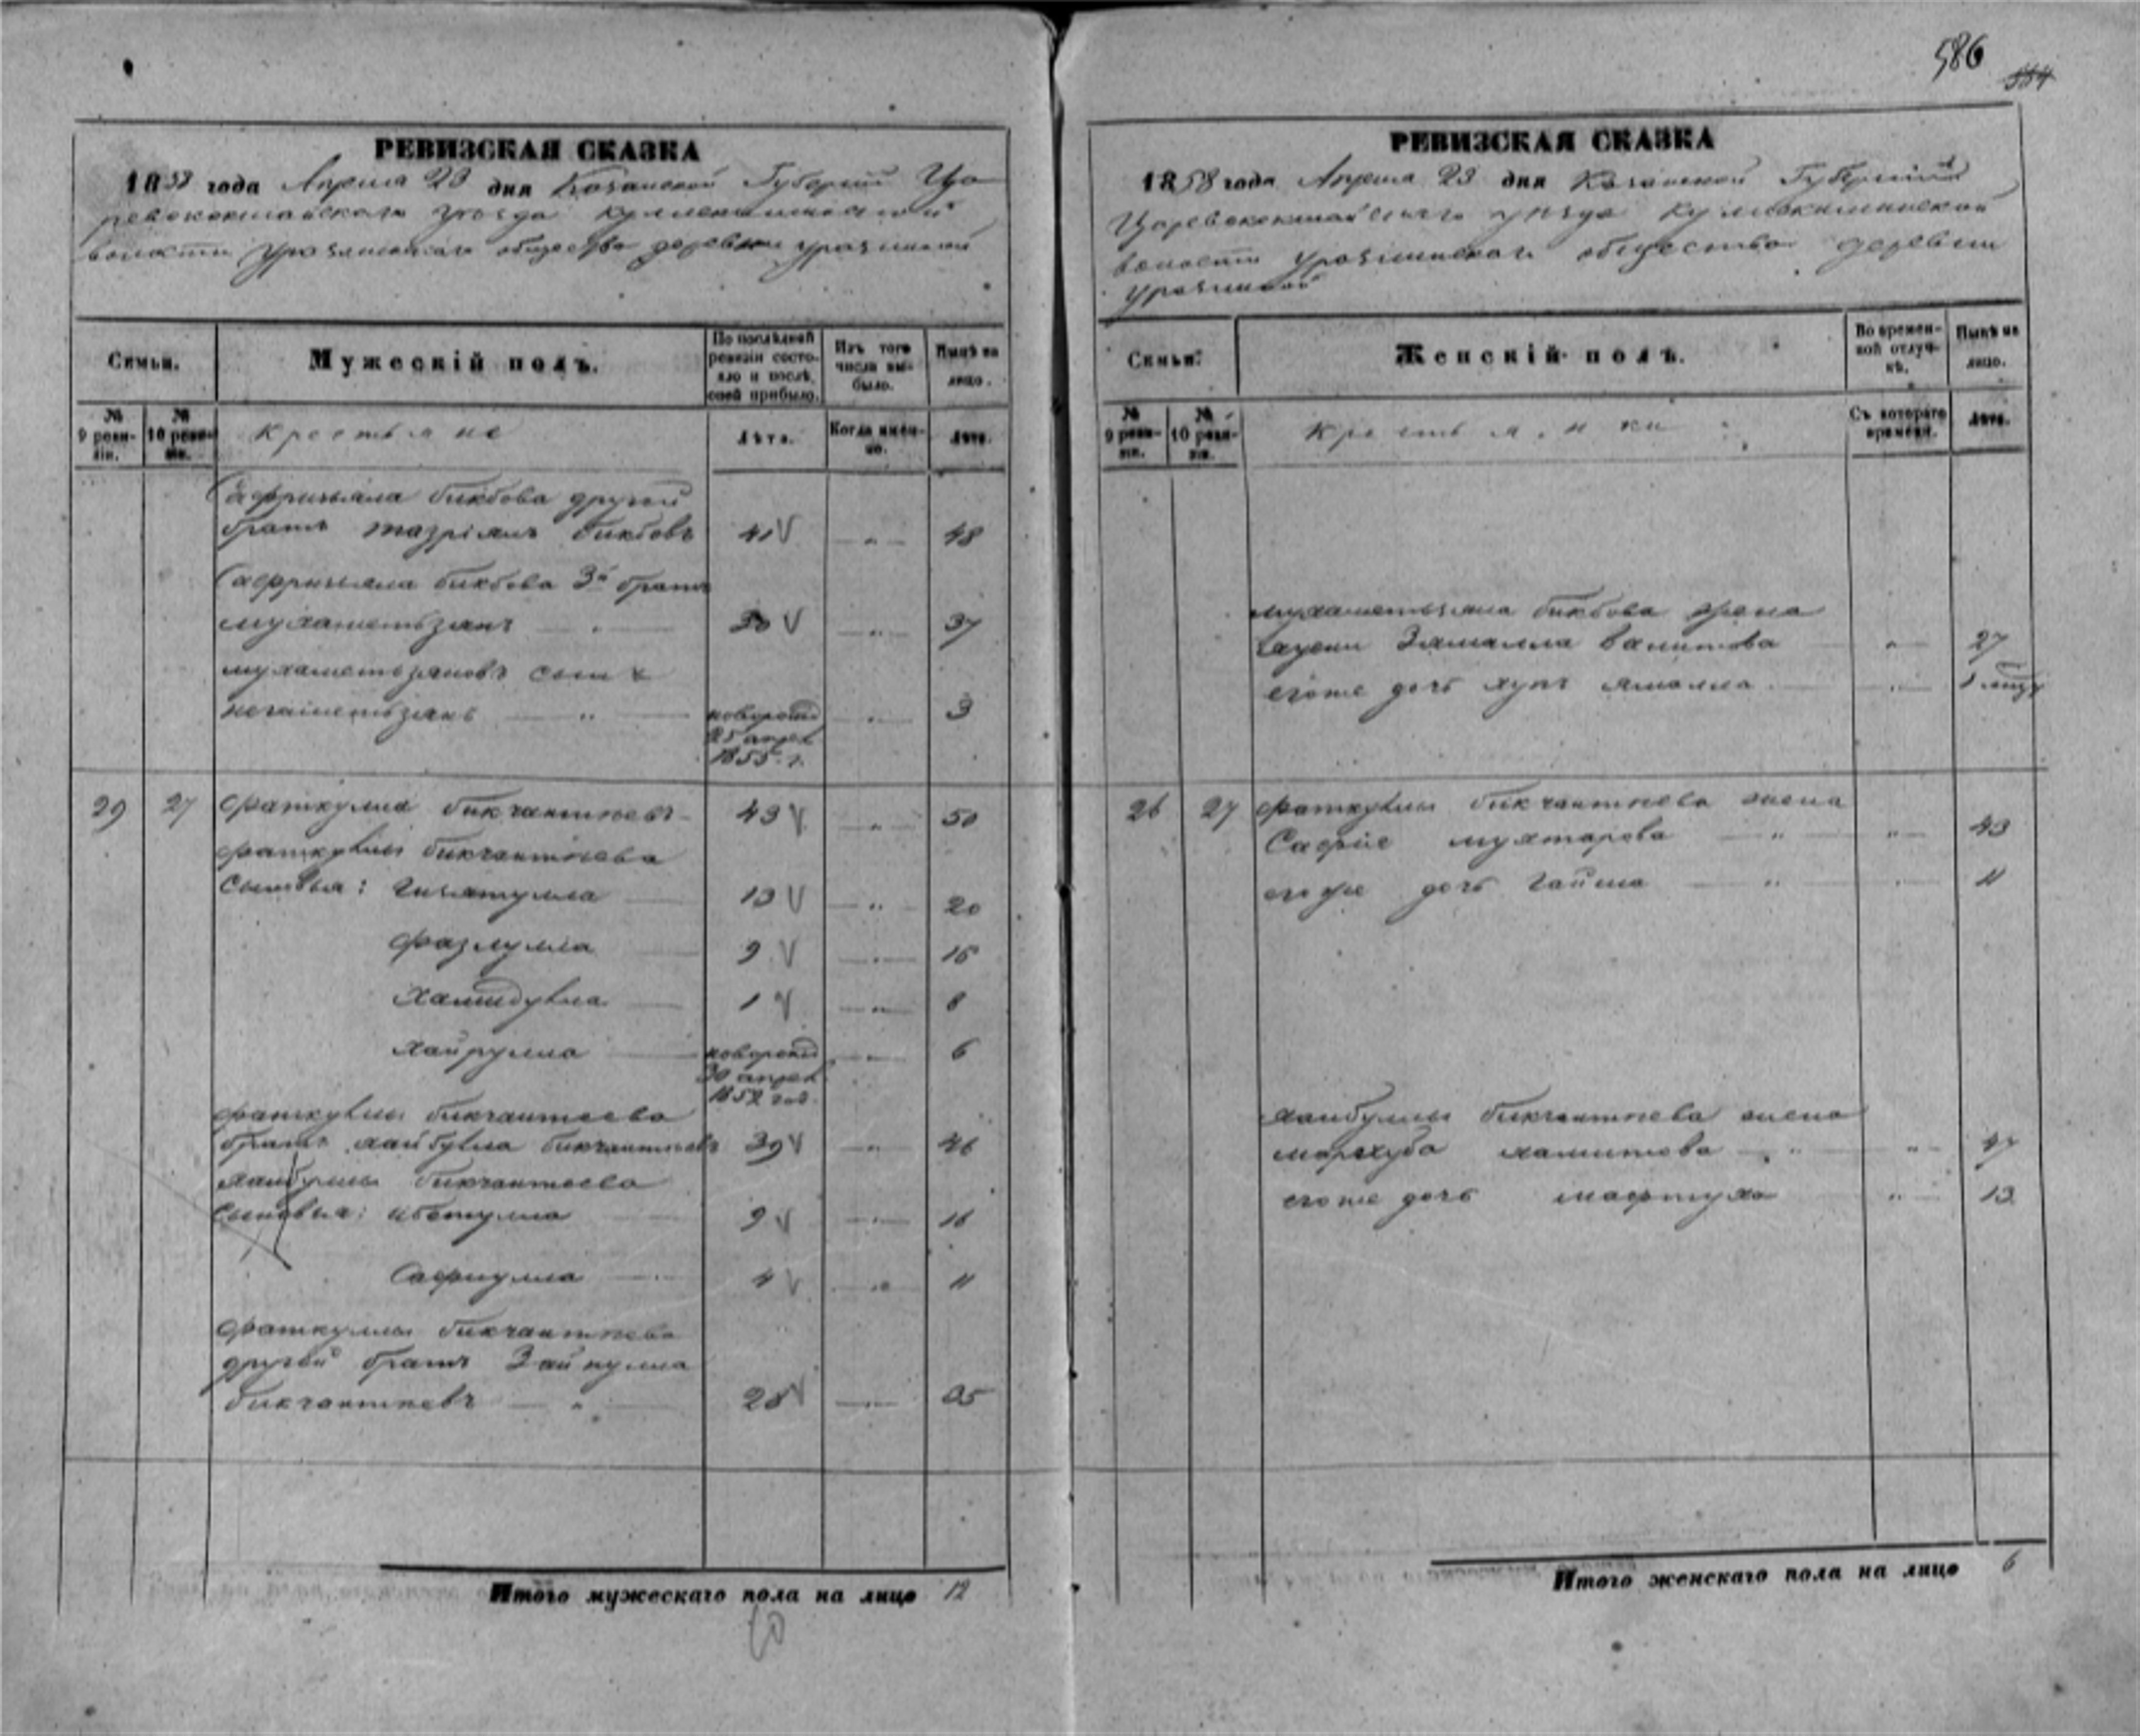 586
554
РЕВИЗСКАЯ СКАЗКА
1858 года Апреля 23 дня Казанской Губерніи Ца
ревококшайскаго уѣзда
волости Уразлинскаго общества деревни Уразлиной
Семьи.
Мужескій полъ.
По послѣдней ревизіи состояло и послѣ оной прибыло.
Изъ того числа выбыло.
Нынѣ на лицо.
№ 9 ревизіи.
№ 10 ревизіи.
Крестьяне
Лѣта.
Когда именно.
Лѣта.
Сафризьяна бикбова другой
братъ Тазріянъ бикбовъ 41 V " 48
Сафризьяна бикбова 3й братъ
мухаметьзянъ " 30 V " 37
мухаметьзяновъ сынъ
негаметьзянъ " новорожд 25 апрел 1855 г. " 3
29 27 Фаткулла бикчантѣевъ 43 V " 50
Фаткуллы бикчантѣева
Сыновья: Гизятулла 13 V " 20
Фазлулла 9 V " 16
Хамидулла 1 V " 8
Хайрулла новорожд 30 апрел 1852 год. " 6
Фаткуллы бикчантеева
братъ хайбулла бикчантѣевъ 39 V " 46
хайбуллы бикчантеева
Сыновья: ибятулла 9 V " 16
Сафиулла 4 V " 11
Фаткуллы бикчантѣева
другой братъ Зайнулла
бикчантѣевъ " 28 V " 35
Итого мужескаго пола на лицо 12
10
РЕВИЗСКАЯ СКАЗКА
1858 года Апреля 23 дня Казанской Губерніи
Царевококшайскаго уѣзда
волости Уразлинскаго общества деревни
Уразлиной
Семьи.
Женскій полъ.
Во временной отлучкѣ.
Нынѣ на лицо.
№ 9 ревизіи.
№ 10 ревизіи.
Крестьянки
Съ котораго времени.
Лѣта.
мухаметьзяна бикбова жена
Зямалла Валитова " 27
его же дочь "
26 27 Фаткуллы бикчантѣева жена
Сафіе мухтарова " " 43
его же дочь Гайша " 11
хайбуллы бикчантѣева жена
мархуба хамитова " " 47
его же дочь мафтуха " 13
Итого женскаго пола на лицо 6